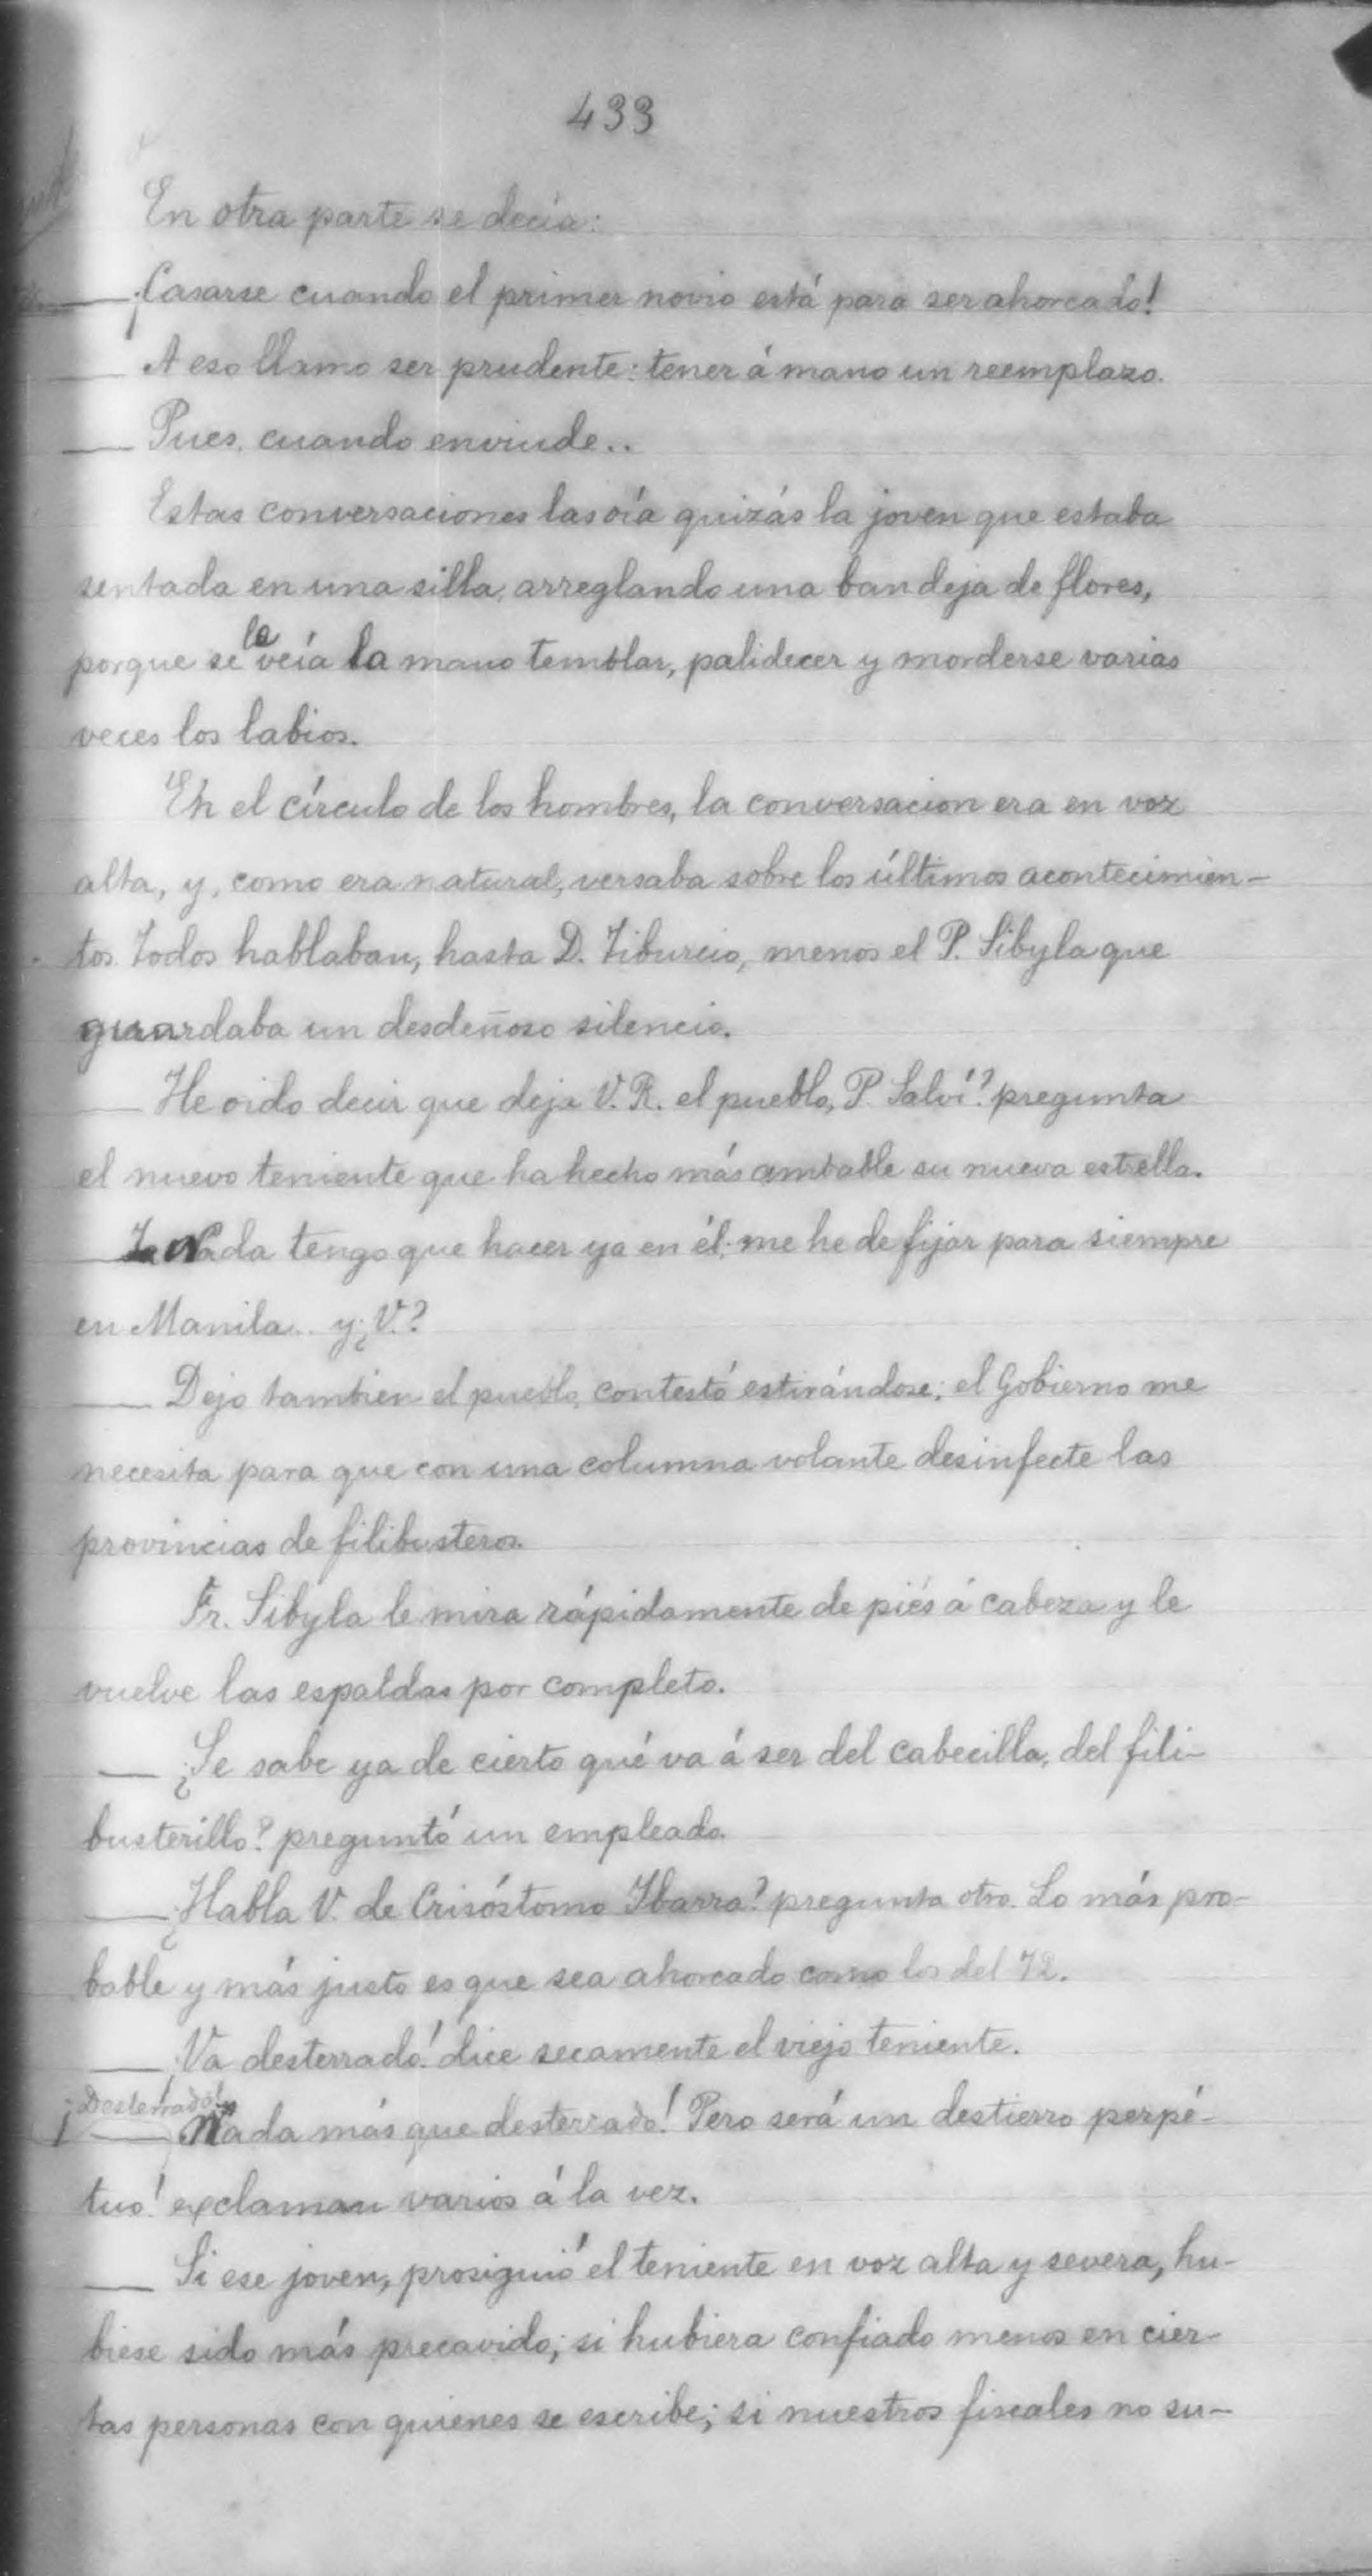 433
En otra parte se decía:
— ¡Casarse cuando el primer novio está para ser ahorcado!
— A eso llamo ser prudente: tener á mano un reemplazo.
— Pues, cuando enviude..
Estas conversaciones las oía quizás la joven que estaba
sentada en una silla, arreglando una bandeja de flores,
porque se le veía la mano temblar, palidecer y morderse varias
veces los labios.
En el círculo de los hombres, la conversacion era en voz
alta, y, como era natural, versaba sobre los últimos acontecimien-
tos. Todos hablaban, hasta D. Tiburcio, menos el P. Sibyla que
guardaba un desdeñoso silencio.
— He oido decir que deja V. R. el pueblo, P. Salví? pregunta
el nuevo teniente que ha hecho más amable su nueva estrella.
— Nada tengo que hacer ya en él; me he de fijar para siempre
en Manila.. y ¿V.?
— Dejo tambien el pueblo, contestó estirándose; el Gobierno me
necesita para que con una columna volante desinfecte las
provincias de filibusteros.
Fr. Sibyla le mira rápidamente de piés á cabeza y le
vuelve las espaldas por completo.
— ¿Se sabe ya de cierto qué va á ser del cabecilla, del fili-
busterillo? preguntó un empleado.
— ¿Habla V. de Crisóstomo Ibarra? pregunta otro. Lo más pro-
bable y más justo es que sea ahorcado como los del 72.
— ¡Va desterrado! dice secamente el viejo teniente.
— ¡Desterrado! Nada más que desterrado! Pero será un destierro perpé-
tuo! exclaman varios á la vez.
— Si ese joven, prosiguió el teniente en voz alta y severa, hu-
biese sido más precavido; si hubiera confiado menos en cier-
tas personas con quienes se escribe; si nuestros fiscales no su-